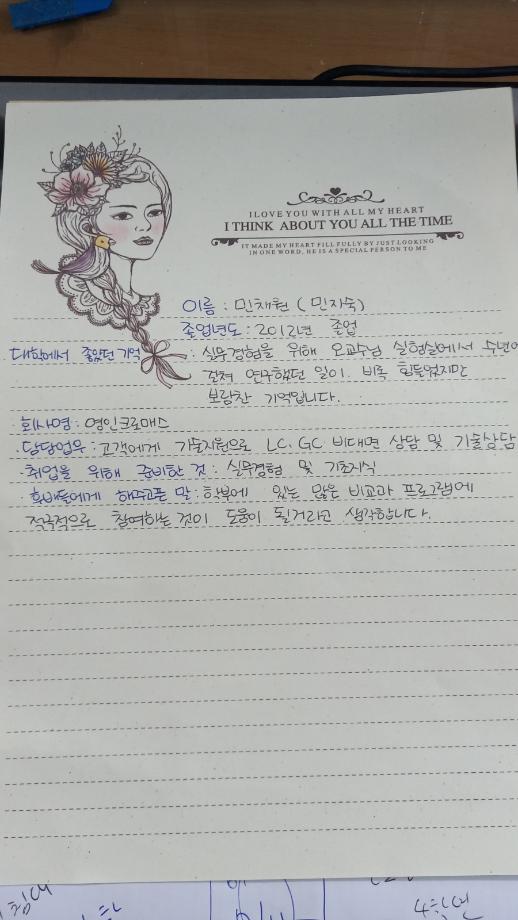 I LOVE YOU WITH ALL MY HEART
I THINK ABOUT YOU ALL THE TIME
IT MADE MY HEART FILL FULLY BY JUST LOOKING
IN ONE WORD, HE IS A SPECIAL PERSON TO ME
이름 : 민채원 (민지숙)
졸업년도 : 2012년 졸업
대학에서 좋았던 기억 : 실무경험을 위해 오교수님 실험실에서 수년에
걸쳐 연구했던 일이 비록 힘들었지만
보람찬 기억입니다.
· 회사명 : 영인크로매스
· 담당업무 : 고객에게 기술지원으로 LC, GC 비대면 상담 및 기술상담
· 취업을 위해 준비한 것 : 실무경험 및 기초지식
후배들에게 해주고픈 말 : 학부에 있는 많은 비교과 프로그램에
적극적으로 참여하는 것이 도움이 될거라고 생각합니다.